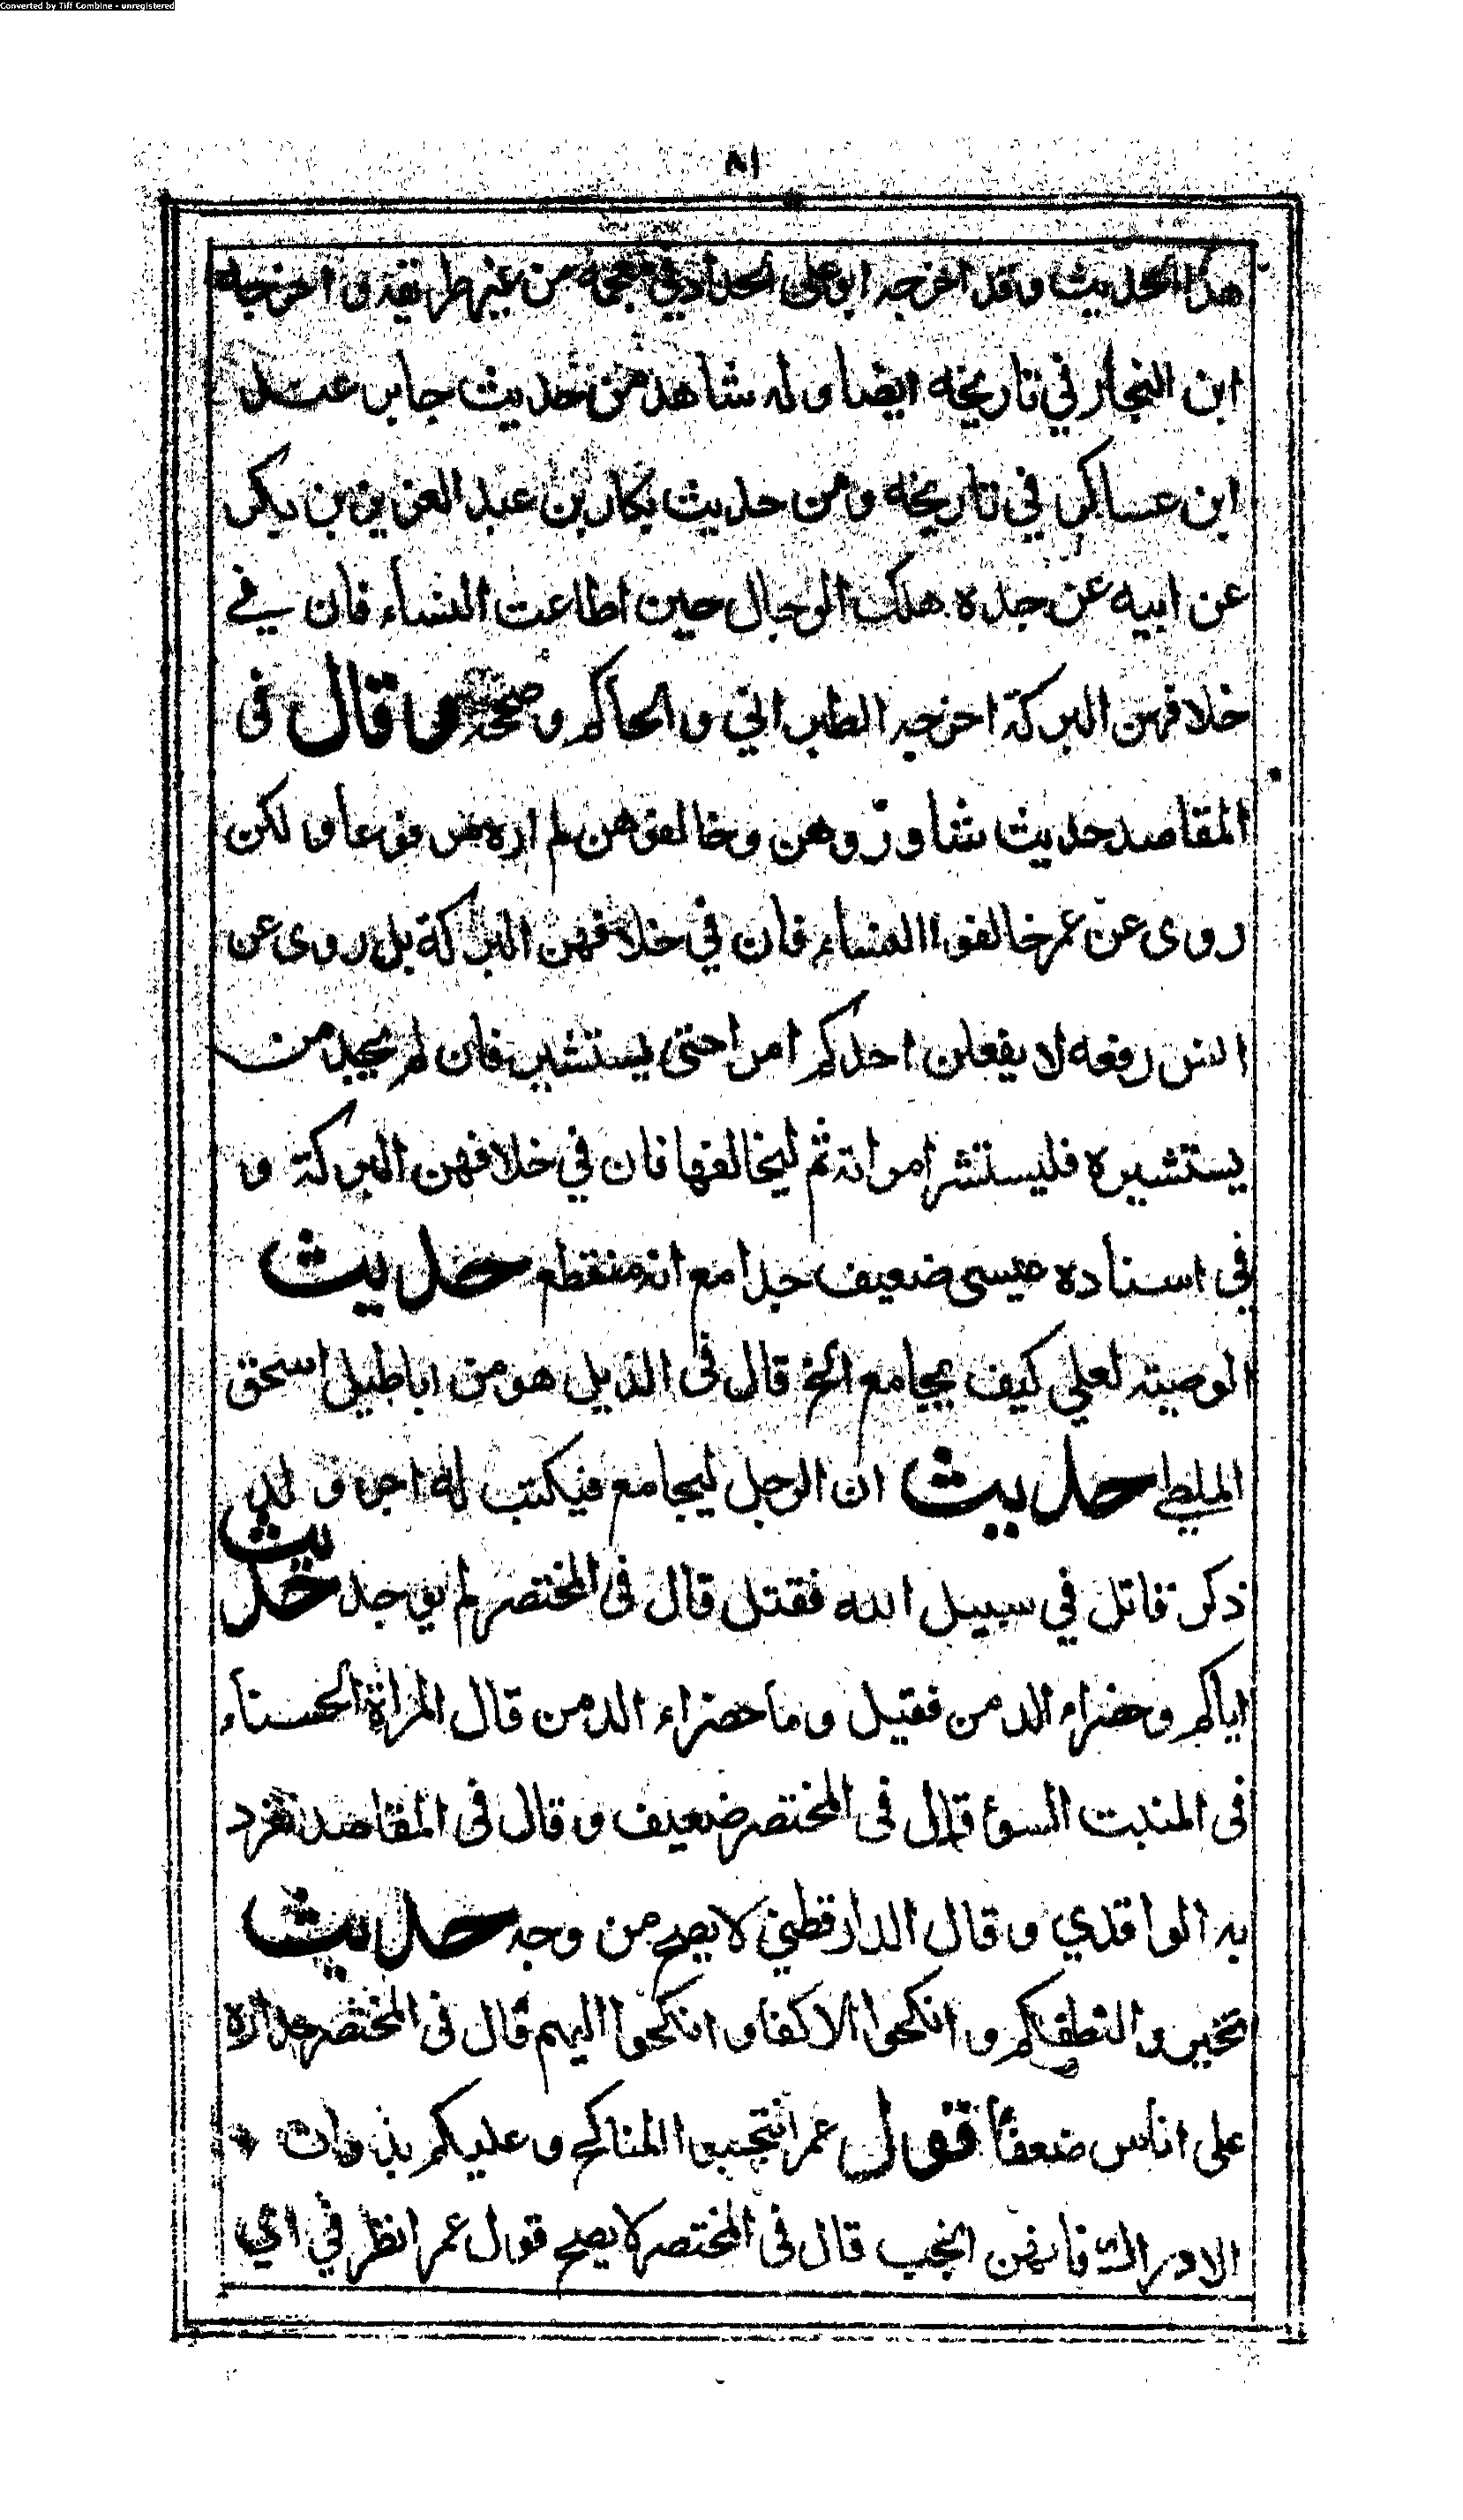 Converted by Tiff Combine - unregistered
٨١
هذا الحديث وقد اخرجه ابو على الحداد في معجمه من غير طريقه واخرجه
ابن النجار في تاريخه ايضا وله شاهد من حديث جابر عند
ابن عساكر في تاريخه ومن حديث بكار بن عبد العزيز بن بكر
عن ابيه عن جده هلك الرجال حين اطاعت النساء فان في
خلافهن البركة اخرجه الطبراني والحاكم وصححه وقال فى
المقاصد حديث شاوروهن وخالفوهن لم اره مرفوعا ولكن
روى عن عمر خالفوا النساء فان في خلافهن البركة بل روى عن
انس رفعه لا يفعلن احدكم امرا حتى يستشير فان لم يجد من
يستشيره فليستشر امراته ثم ليخالفها فان في خلافهن البركة و
في اسناده عيسى ضعيف جدا مع انه منقطع حديث
الوصية لعلي كيف يجامع الخ قال فى الذيل هو من اباطيل اسحق
الملطي حديث ان الرجل ليجامع فيكتب له اجر ولد
ذكر قاتل في سبيل الله فقتل قال فى المختصر لم يوجد حديث
اياكم وخضراء الدمن فقيل وما خضراء الدمن قال المراة الحسناء
فى المنبت السوؤ قال فى المختصر ضعيف وقال فى المقاصد تفرد
به الواقدي وقال الدارقطني لا يصح من وجه حديث
تخيروا لنطفكم وانكحوا الاكفاء وانكحوا اليهم قال فى المختصر مداره
على اناس ضعفاً قول عمر انتجبوا المناكح وعليكم بذوات
الاوراك فانهن انجب قال فى المختصر لا يصح قول عمر انظر في اي